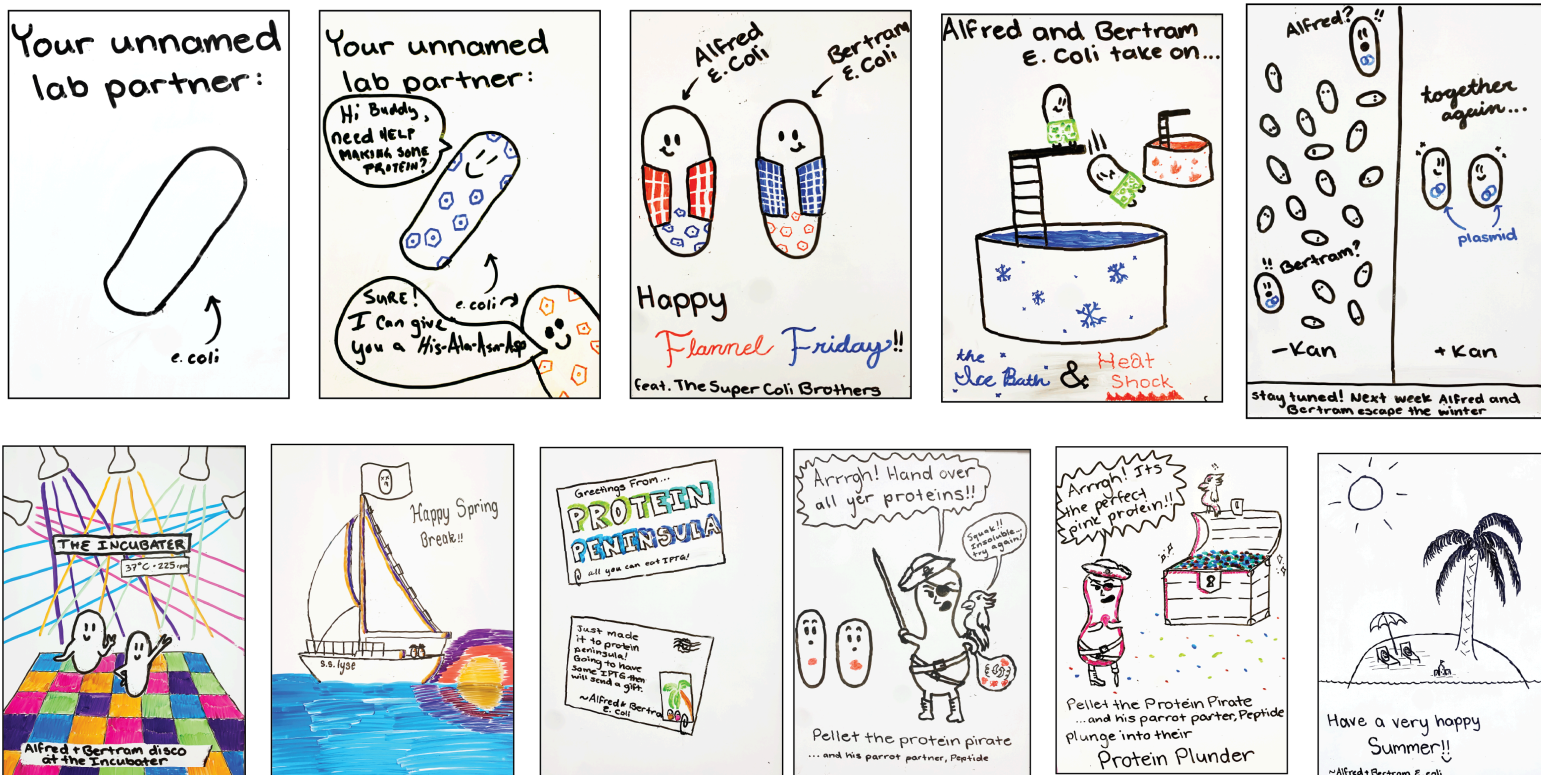 Your unnamed
lab partner:
e. coli
Your unnamed
lab partner:
Hi Buddy,
need HELP
MAKING SOME
PROTEIN?
e. coli
SURE!
I can give
you a His-Ala-Asn-Asp
Alfred
E. Coli
Bertram
E. Coli
Happy
Flannel Friday!!
feat. The Super Coli Brothers
Alfred and Bertram
E. Coli take on...
the
Ice Bath & Heat
Shock
Alfred? !!
!! Bertram?
-Kan
together
again...
plasmid
+ Kan
stay tuned! Next week Alfred and
Bertram escape the winter
THE INCUBATER
37°C · 225 rpm
Alfred + Bertram disco
at the Incubater
Happy Spring
Break!!
s.s. lyse
Greetings From...
PROTEIN
PENINSULA
all you can eat IPTG!
Just made
it to protein
peninsula!
Going to have
some IPTG then
will send a gift.
~Alfred & Bertram
E. Coli
Arrrgh! Hand over
all yer proteins!!
Squak!!
Insoluble...
try again!
Pellet the protein pirate
... and his parrot partner, Peptide
Arrrgh! Its
the perfect
pink protein!!
!!
Pellet the Protein Pirate
...and his parrot parter, Peptide
plunge into their
Protein Plunder
Have a very happy
Summer!!
~Alfred + Bertram E. coli